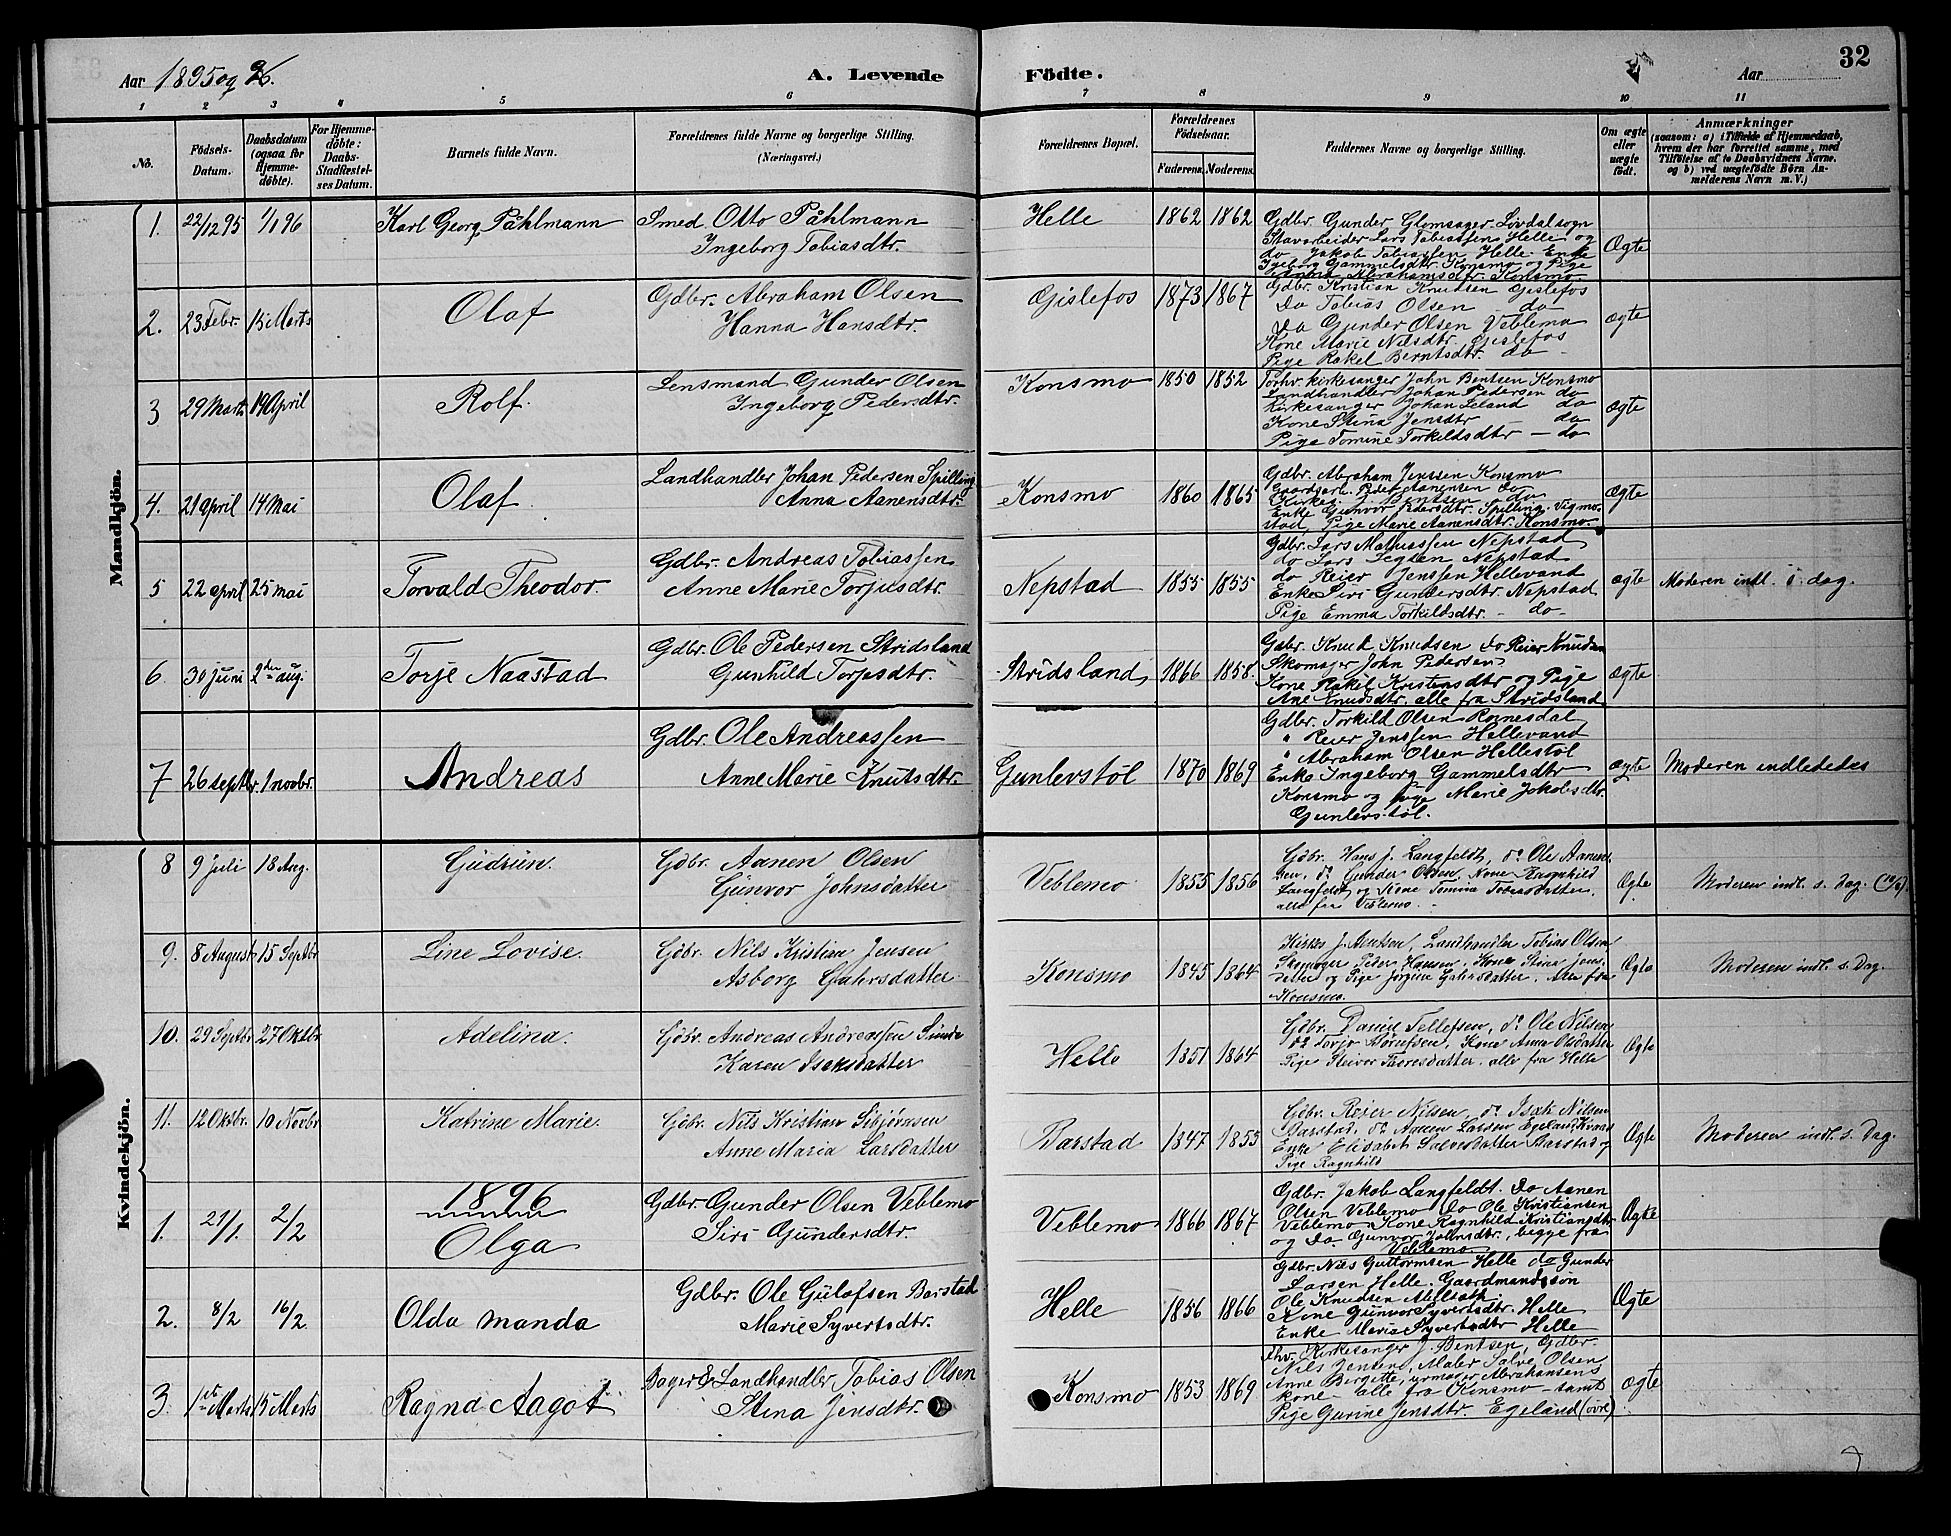 Aar 1895 og 96. A. Levende Födte. Aar 32
1 2 3 4 5 6 7 8 9 10 11
No.
Födsels-Datum.
Daabsdatum (ogsaa for Hjemme-döbte).
For Hjemme-döbte: Daabs-Stadfæstel-ses Datum.
Barnets fulde Navn.
Forældrenes fulde Navne og borgerlige Stilling. (Næringsvei.)
Forældrenes Bopæl.
Forældrenes Födselsaar. Faderens. Moderens.
Faddernes Navne og borgerlige Stilling.
Om ægte eller uægte födt.
Anmærkninger
(saasom: a) i Tilfælde af Hjemmedaab, hvem der har forrettet samme, med Tilföielse af to Daabsvidners Navne. og b) ved uægtefödte Börn An-melderens Navn m. V.)
Mandkjön.
1. 22/12 95 1/1 96 Karl Georg Påhlmann Smed Otto Påhlmann Helle 1862 1862 Gdbr. Gunder Glomsager Lovdal sogn
Ingeborg Tobiasdtr. Stavarbeider Lars Tobiassen Helle og
do Jakob Tobiassen Helle. Enke Ægte
Igeborg Gammelsdtr. Konsmo og Pige
Abrahamsdtr. Konsmo
2. 23 Febr. 15 Marts Olaf Gdbr. Abraham Olsen Gislefos 1873 1867 Gdbr. Kristian Knudsen Gislefos
Hanna Hansdtr. Do Tobias Olsen do
Do Gunder Olsen Veblemo ægte
Kone Marie Nilsdtr. Gislefos
Pige Rakel Berntsdtr. do
3 29 Marts 19 April Rolf. Lensmand Gunder Olsen Konsmo 1850 1852 Forhv. kirkesanger John Bentsen Konsmo
Ingeborg Pedersdtr. Landhandler Johan Pedersen do
Kirkesanger Johan Leland do ægte
Kone Stina Jensdtr do
Pige Tomine Torkildsdtr - do
4. 21 April 14 Mai Olaf. Landhandler Johan Pedersen Spilling Konsmo 1860 1865 Gdbr. Abraham Jenssen Konsmo
Anna Aanensdtr. Peder Aanensen do ægte
J. Bentsen do
Enke Gunvor Pedersdtr. Spilling. Vigmo-
stad, Pige Marie Aanensdtr. Konsmo.
5 22 april 25 mai Torvald Theodor. Gdbr. Andreas Tobiassen Nepstad 1855 1855 Gdbr. Lars Mathiassen Nepstad
Anne Marie Torjusdtr. do Lars Nepstad
do Reier Jenssen Hellevand ægte Moderen indl. i dag.
Enke Siri Gundersdtr Nepstad
Pige Emma Torkildsdtr. - do -
6. 30 juni 2den aug. Torje Naastad Gdbr. Ole Pedersen Stridsland Stridsland 1866 1858. Gdbr. Knud Knudsen do Reier Knudsen
Gunhild Torjesdtr. Skomager John Pedersen
Kone Rakel Kristensdtr og Pige ægte
Ane Knudsdtr. alle fra Stridsland
7 26 septbr. 1 novbr. Andreas Gdbr. Ole Andreassen Gunlevstøl 1870 1869 Gdbr. Torkild Olsen Romesdal
Anne Marie Knutsdtr. " Reier Jenssen Hellevand
" Abraham Olsen Hellestøl
Enke Ingeborg Gammelsdtr ægte Moderen indlededes
Konsmo og pige Marie Jakobsdtr.
Gunlevstøl.
Kvindekjön.
8 9 Juli 18 Aug. Gudrun. Gdbr. Aanen Olsen Veblemo 1855 1856 Gdbr. Hans J. Langfeldt, do Ole Aanen-
Gunvor Johnsdatter sen, do Gunder Olsen, Kone Ragnhild
Langfeldt og Kone Tomine Tobiasdatter. Ægte Moderen indl. s. Dag.
alle fra Veblemo.
9. 8 August 15 Septbr Line Lovise. Gdbr. Nils Kristian Jensen Konsmo 1845 1864 Kirkes. J. Bentsen, Landhandler Tobias Olsen
Asborg Gahrsdatter Skomager Peder Hansen, Kone Stina Jens-
datter og Pige Jorgine Gahrsdatter. Alle fra Ægte Moderen indl. s. Dag.
Konsmo.
10. 29 Septbr 27 Oktbr Adelina. Gdbr. Andreas Andreassen Sunde Helle 1851 1864 Gdbr. Daniel Tellefsen, do Ole Nilsen
Karen Isaksdatter do Torjo Kone Anne Olsdatter Ægte
Pige Theresdatter, alle fra Helle
11. 12 Oktbr. 10 Novbr Katrine Marie. Gdbr. Nils Kristian Sibjørnsen Barstad 1847 1853 Gdbr. Reier Nilsen, do Isak Nilsen
Anne Maria Larsdatter Barstad, do Aanen Larsen Egeland
Enke Elisabeth Salvesdatter Barstad og Ægte Moderen indl. s. Dag.
Pige Ragnhild
1896
1. 21/1. 2/2 Olga Gdbr. Gunder Olsen Veblemo Veblemo 1866 1867 Gdbr. Jakob Langfeldt. Do Aanen
Siri Gundersdtr. Olsen Veblemo Do Ole Kristiansen
Veblemo Kone Ragnhild Kristiansdtr Ægte
og Do Gunvor Johnsdtr., begge fra
Veblemo
2. 8/2 16/2 Olda Manda Gdbr. Ole Gulofsen Barstad Helle 1856 1866 Gdbr. Nils Guttormsen Helle do Gunder
Marie Syvertsdtr. Larsen Helle. Gaardmandssøn
Ole Knudsen Ægte
Kone Gunvor Syvertsdtr. Helle
Enke Maria Syvertsdtr Helle
3. 1ste Marts 15 Marts Ragna Aagot Bager & Landhandler Tobias Olsen Konsmo 1853 1869 fhv. Kirkesanger J. Bentsen, Gdbr.
Stina Jensdtr. Nils Jensen, Maler Salve Olsen
Anne Bergette, urmager Abrahamsens ægte
kone - alle fra Konsmo - samt
Pige Gurine Jensdtr. Egeland (øvre)